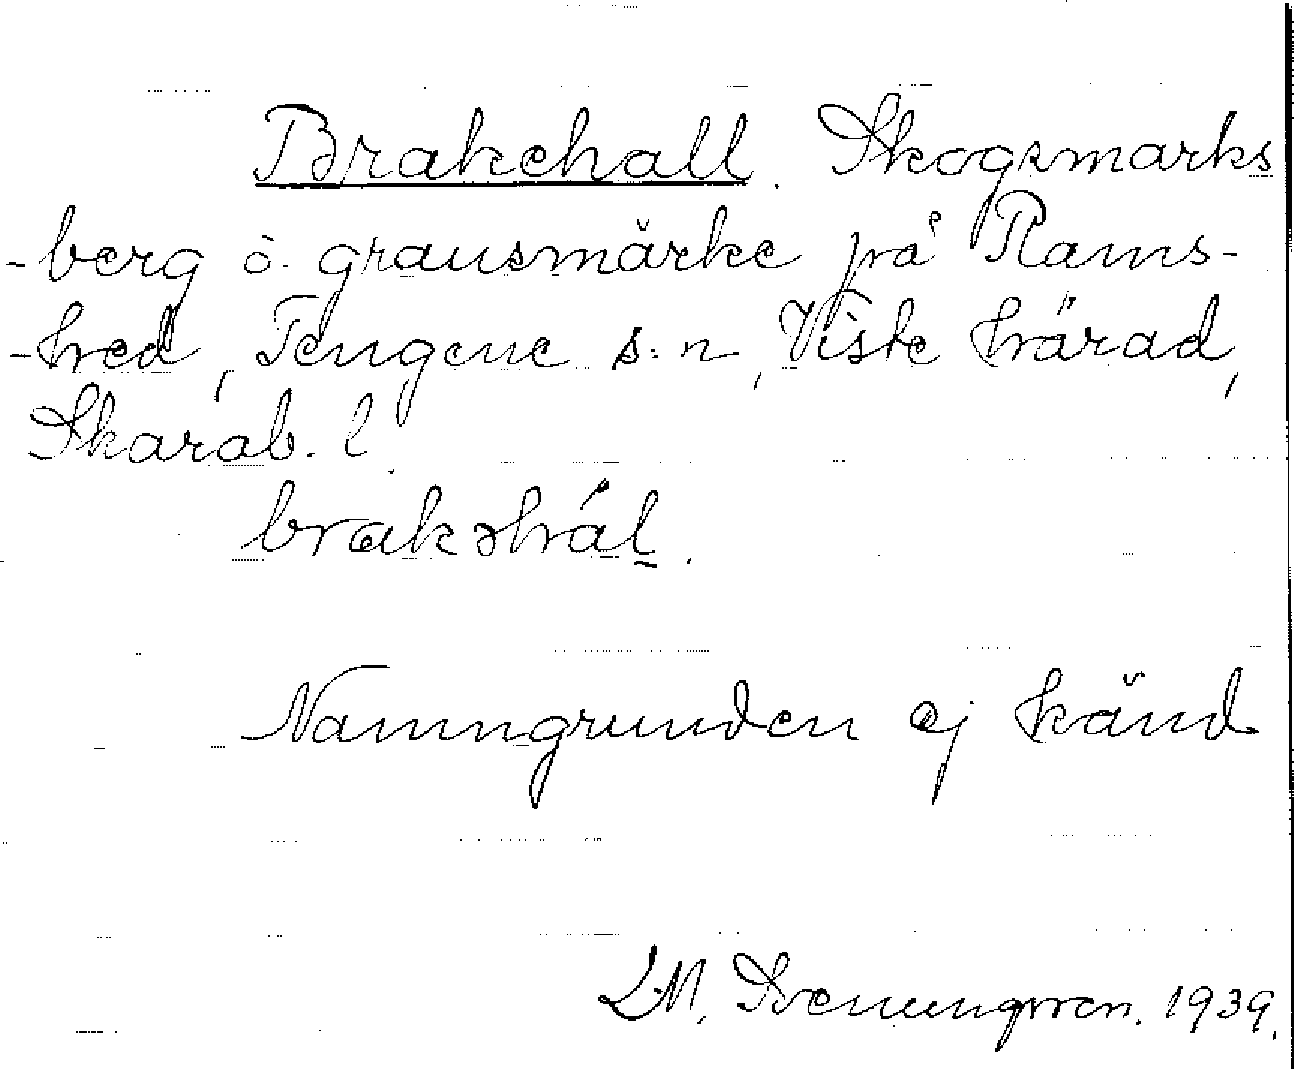 Brakehall. Skogsmarks
-berg o. gränsmärke på Rams-
-hed, Tengene s:n, Viste härad,
Skarab. l.
brakəhál.
Namngrunden ej känd
LM. Svenungsson. 1939.